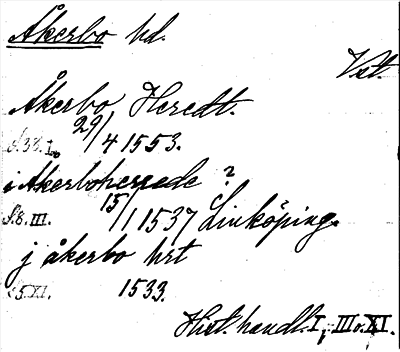 Åkerbo hd.
Vst.
Åkerbo Heredt.
s. 38. I. 29/4 1553.
i Åkerboherrede ?
s. 8. III. 15/1 1537 Linköping.
j åkerbo hrt
s. 5. XI. 1533.
Hist. handl. I, III o. XI.